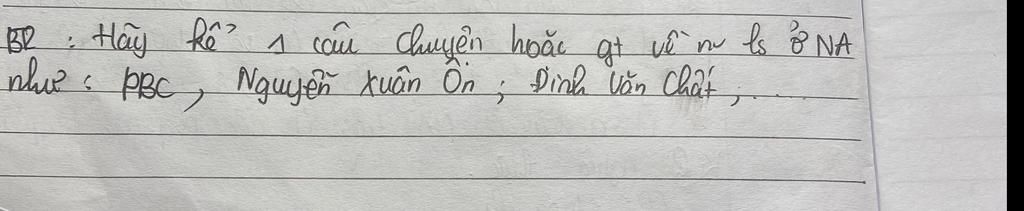 B2 : Hãy kể 1 câu chuyện hoặc gt về nv ls ở NA
như : PBC, Nguyễn Xuân Ôn ; Đinh Văn Chất, ....